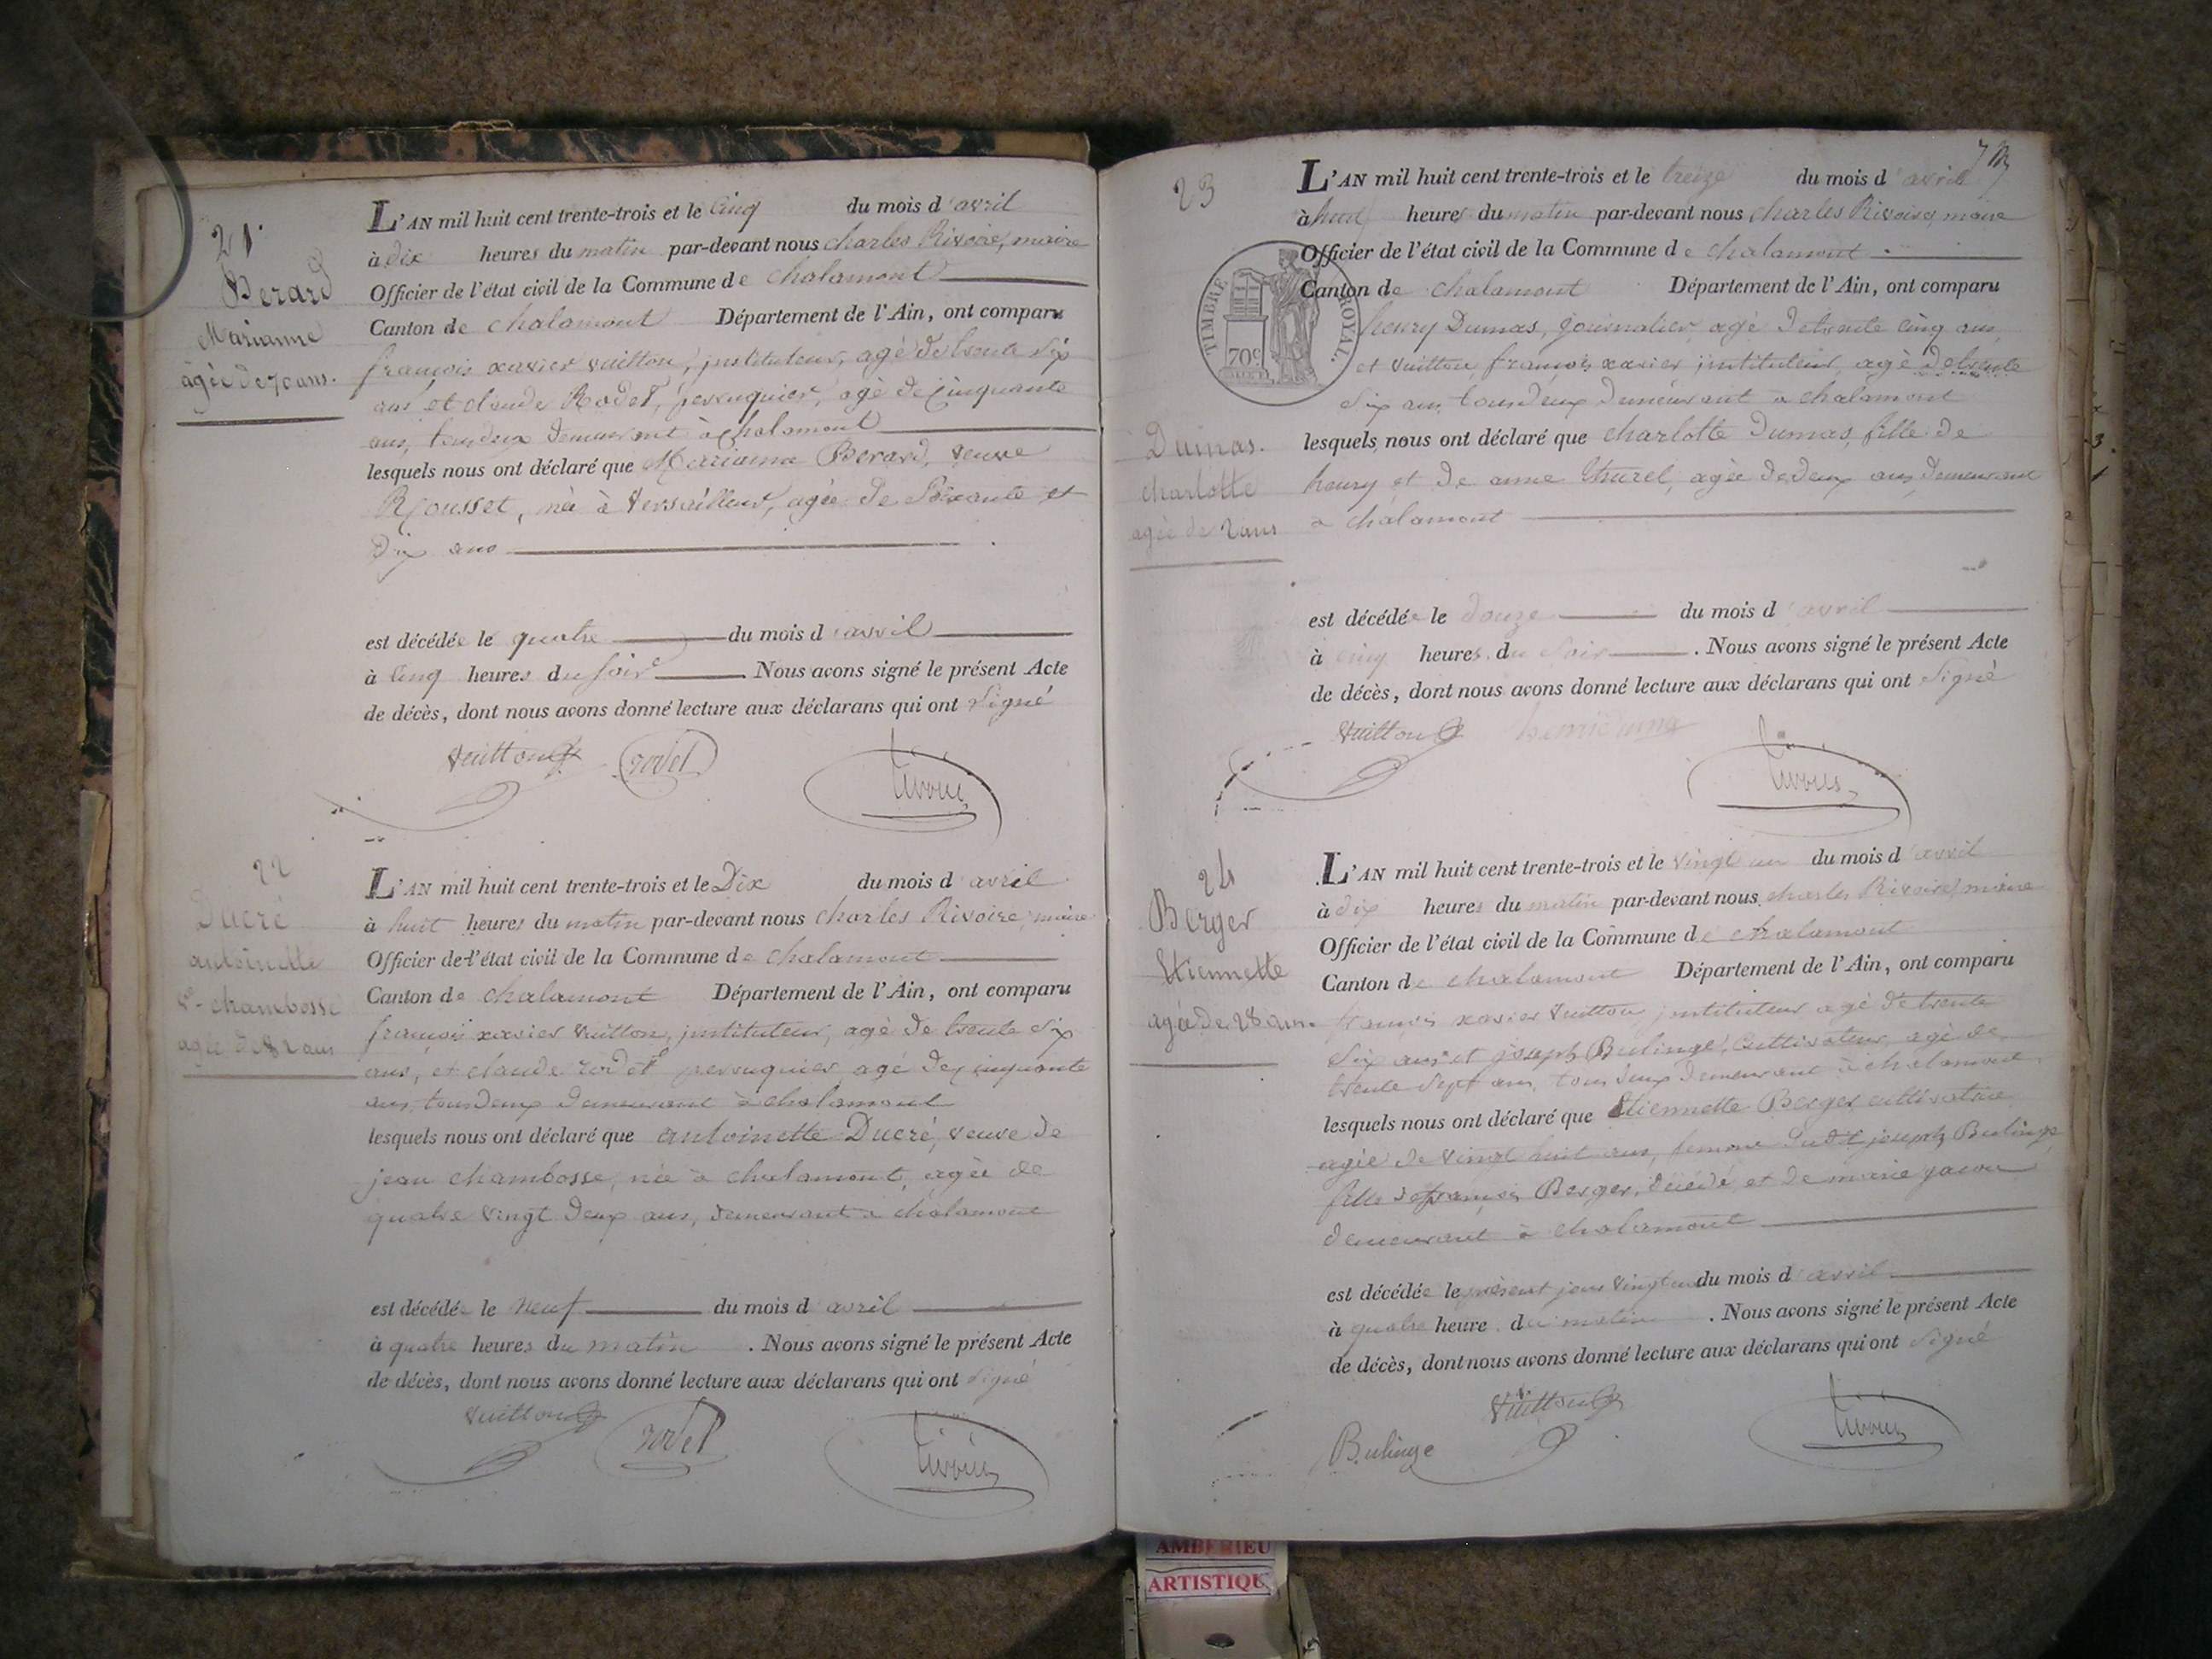 21.
Berard
Marianne
agée de 70 ans.
L'AN mil huit cent trente-trois et le cinq du mois d'avril
à dix heures du matin par-devant nous charles Rivoire, maire
Officier de l'état civil de la Commune de chalamont
Canton de chalamont Département de l'Ain, ont comparu
françois xavier vuitton, instituteur, agé de trente six
ans et claude Rodet, perruquier, agé de cinquante
ans, tous deux demeurant à chalamont
lesquels nous ont déclaré que Marianne Berard, veuve
Rousset, née à Versailleux, agée de Soixante et
dix ans
est décédée le quatre du mois d'avril
à cinq heures du soir. Nous avons signé le présent Acte
de décès, dont nous avons donné lecture aux déclarans qui ont signé
Vuitton rodet Rivoire
22
Ducré
antoinette
Ve chambosse
agée de 82 ans
L'AN mil huit cent trente-trois et le Dix du mois d'avril
à huit heures du matin par-devant nous charles Rivoire, maire
Officier de l'état civil de la Commune de chalamont
Canton de chalamont Département de l'Ain, ont comparu
françois xavier vuitton, instituteur, agé de trente six
ans, et claude rodet perruquier, agé de cinquante
ans, tous deux demeurant à chalamont
lesquels nous ont déclaré que antoinette Ducré, veuve de
jean chambosse, née à chalamont, agée de
quatre vingt deux ans, demeurant à chalamont
est décédée le neuf du mois d'avril
à quatre heures du matin. Nous avons signé le présent Acte
de décès, dont nous avons donné lecture aux déclarans qui ont signé
Vuitton rodet Rivoire
23
Dumas.
charlotte
agée de 2 ans
TIMBRE ROYAL.
70c
L'AN mil huit cent trente-trois et le treize du mois d'avril
à huit heures du matin par-devant nous charles Rivoire, maire
Officier de l'état civil de la Commune de chalamont
Canton de chalamont Département de l'Ain, ont comparu
henry Dumas, journalier, agé de trente cinq ans,
et vuitton, françois xavier instituteur, agé de trente
six ans, tous deux demeurant à chalamont
lesquels nous ont déclaré que charlotte Dumas, fille de
henry et de anne thurel, agée de deux ans, demeurant
à chalamont
est décédée le douze du mois d'avril
à cinq heures du soir. Nous avons signé le présent Acte
de décès, dont nous avons donné lecture aux déclarans qui ont signé
Vuitton henri dumas Rivoire
24
Berger
Etiennette
agée de 28 ans.
L'AN mil huit cent trente-trois et le vingt un du mois d'avril
à dix heures du matin par-devant nous charles Rivoire, maire
Officier de l'état civil de la Commune de chalamont
Canton de chalamont Département de l'Ain, ont comparu
françois xavier Vuitton instituteur agé de trente
six ans et joseph Bulinge, cultivateur, agé de
trente sept ans, tous deux demeurant à chalamont
lesquels nous ont déclaré que Etiennette Berger, cultivatrice
agée de vingt huit ans, femme dudit joseph Bulinge,
fille de françois Berger, décédé, et de marie
demeurant à chalamont
est décédée le présent jour vingt un du mois d'avril
à quatre heure du matin. Nous avons signé le présent Acte
de décès, dont nous avons donné lecture aux déclarans qui ont signé
Vuitton
Bulinge Rivoire
AMBERIEU
ARTISTIQU